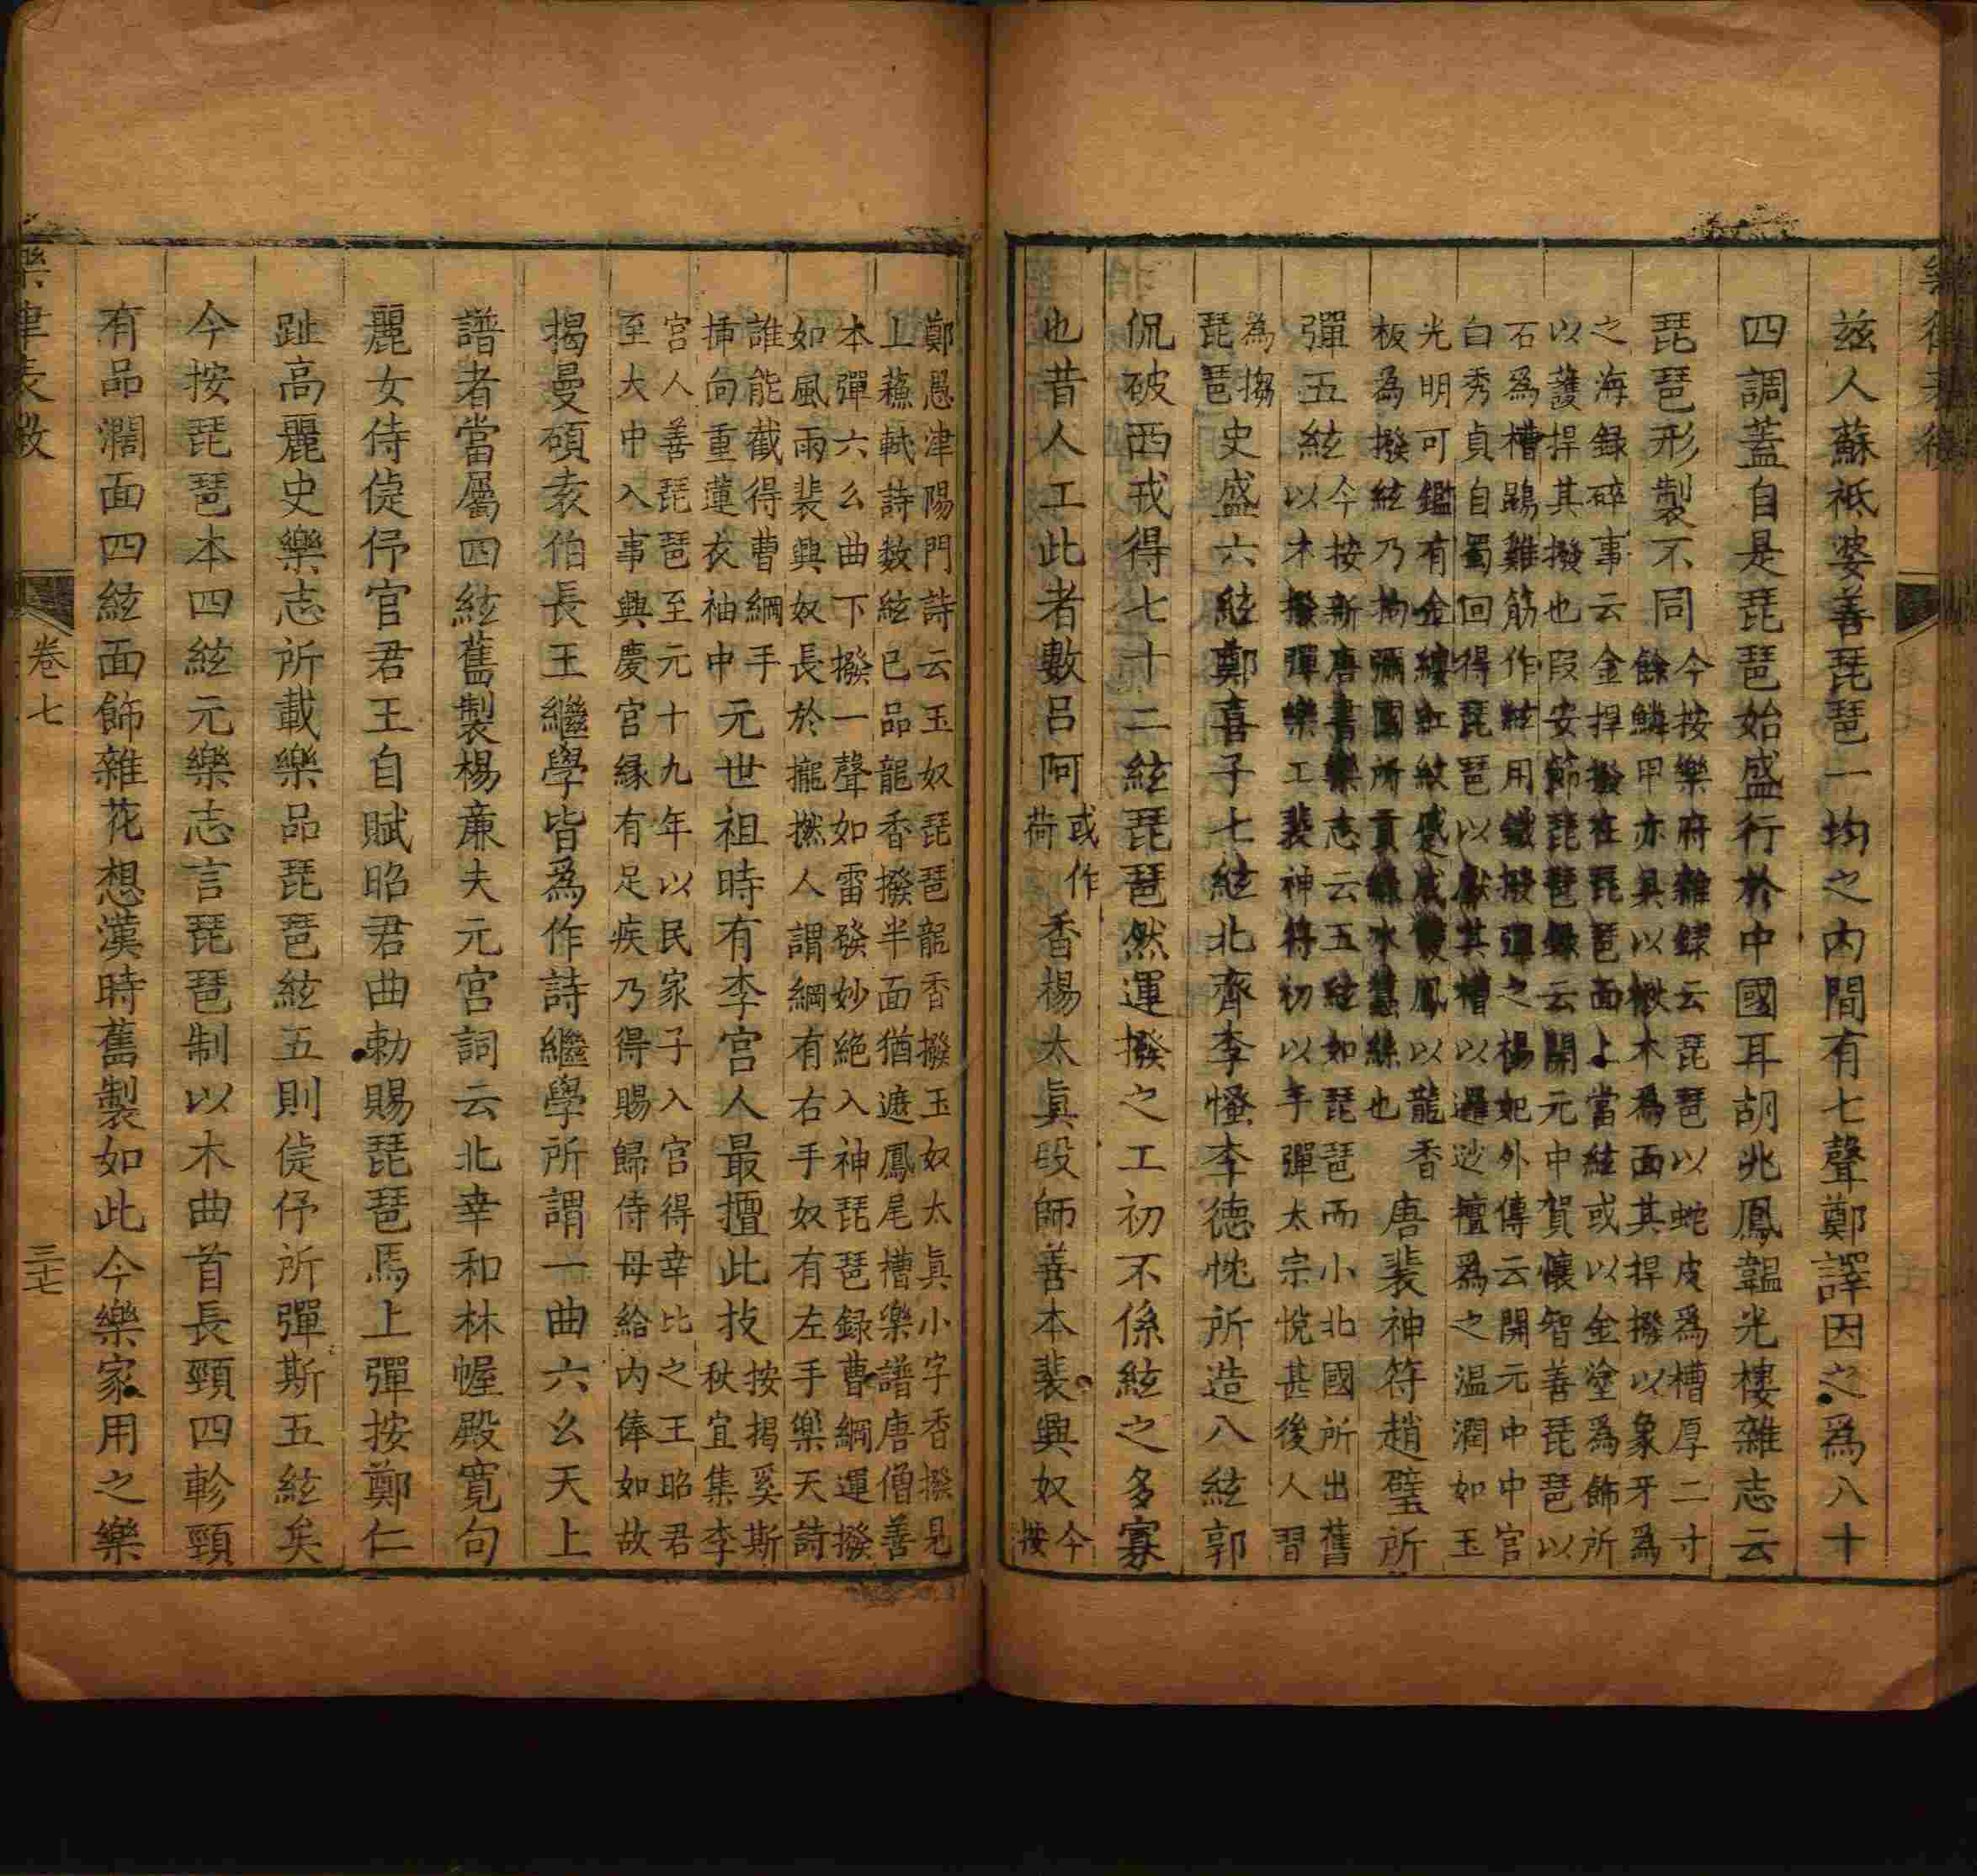 玆人蘇祗婆善琵琶一均之内間有七聲鄭譯因之爲八十
四調蓋自是琵琶始盛行於中國耳胡兆鳳韞光樓雜志云
琵琶形製不同
今按樂府雜錄云琵琶以蛇皮爲槽厚二寸
餘鱗甲亦具以楸木爲面其捍撥以象牙爲
之海録碎事云金捍撥在琵琶面上當絃或以金塗爲飾所
以護捍其撥也段安節琵琶録云開元中賀懷智善琵琶以
石爲槽鵾雞筋作絃用鐵撥彈之楊妃外傳云開元中中官
白秀貞自蜀回得琵琶以獻其槽以邏逤檀爲之温潤如玉
光明可鑑有金縷紅紋蹙成雙鳳以龍香
板為撥絃乃拘彌國所貢緑水蠶絲也
唐裴神符趙璧所
彈五絃
今按新唐書樂志云五絃如琵琶而小北國所出舊
以木撥彈樂工裴神符初以手彈太宗悅甚後人習
為搊
琵琶
史盛六絃鄭喜子七絃北齊李慅李德忱所造八絃郭
侃破西戎得七十二絃琵琶然運撥之工初不係絃之多寡
也昔人工此者數呂阿
或作
荷
香楊太眞段師善本裴興奴
今
按
鄭愚津陽門詩云玉奴琵琶龍香撥玉奴太眞小字香撥見
上蘇軾詩數絃已品龍香撥半面猶遮鳳尾槽樂譜唐僧善
本彈六么曲下撥一聲如雷發妙絶入神琵琶録曹綱運撥
如風雨裴興奴長於攏撚人謂綱有右手奴有左手樂天詩
誰能截得曹綱手
挿向重蓮衣袖中
元世祖時有李宫人最擅此技
按揭奚斯
秋宜集李
宫人善琵琶至元十九年以民家子入宫得幸比之王昭君
至大中入事興慶宫縁有足疾乃得賜歸侍母給内俸如故
揭曼碩袁伯長王繼學皆爲作詩繼學所謂一曲六么天上
譜者當屬四絃舊製楊亷夫元宫詞云北幸和林幄殿寛句
麗女侍倢伃官君王自賦昭君曲勅賜琵琶馬上彈按鄭仁
趾高麗史樂志所載樂品琵琶絃五則倢伃所彈斯五絃矣
今按琵琶本四絃元樂志言琵琶制以木曲首長頸四軫頸
有品濶面四絃面飾雜花想漢時舊製如此今樂家用之樂
樂律表微
卷七
三十七